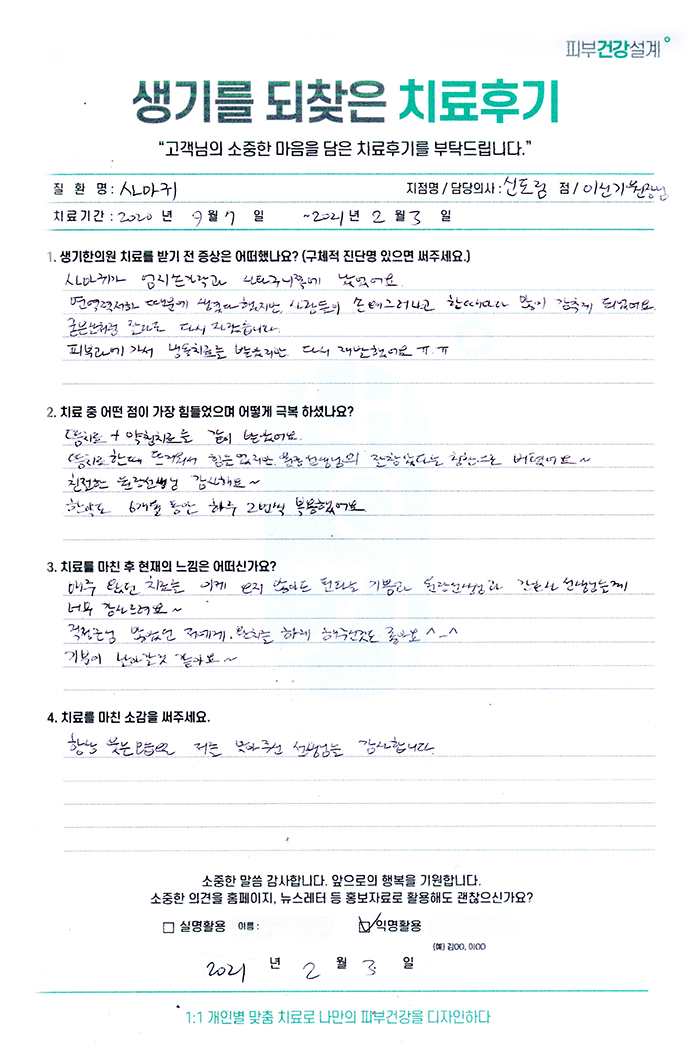 피부건강설계
생기를 되찾은 치료후기
“고객님의 소중한 마음을 담은 치료후기를 부탁드립니다.”
질 환 명 : 사마귀 지점명 / 담당의사 : 신도림 점 / 이신기 원장님
치료기간 : 2020 년 9 월 7 일 ~ 2021 년 2 월 3 일
1. 생기한의원 치료를 받기 전 증상은 어떠했나요? (구체적 진단명 있으면 써주세요.)
사마귀가 엄지손가락과 났었어요.
면역력저하 때문에 생겼다 했지만, 사람들이 손 한때마다 많이 감추게 되었어요.
다시
피부과에 가서 냉동치료를 받았지만 다시 재발했어요 ㅠ.ㅠ
2. 치료 중 어떤 점이 가장 힘들었으며 어떻게 극복 하셨나요?
뜸치료 + 약침치료를 같이 받았어요.
뜸치료할때 뜨거워서 힘은 있지만 원장선생님의 잘참았다는 칭찬으로 버텼어요~
친절한 원장선생님 감사해요~
한약도 6개월 동안 하루 2번씩 복용했어요
3. 치료를 마친 후 현재의 느낌은 어떠신가요?
매주 왔던 치료를 이제 오지 않아도 된다는 기쁨과 원장선생님과 간호사 선생님들께
너무 감사드려요~
걱정근심 많았던 저에게. 완치를 하게 해주신것도 좋아요 ^_^
기분이 날아갈것 같아요~
4. 치료를 마친 소감을 써주세요.
항상 웃는 저를 맞아주신 선생님들 감사합니다.
소중한 말씀 감사합니다. 앞으로의 행복을 기원합니다.
소중한 의견을 홈페이지, 뉴스레터 등 홍보자료로 활용해도 괜찮으신가요?
실명활용 이름 : 익명활용
(예) 김OO, 이OO
2021 년 2 월 3 일
1:1 개인별 맞춤 치료로 나만의 피부건강을 디자인하다